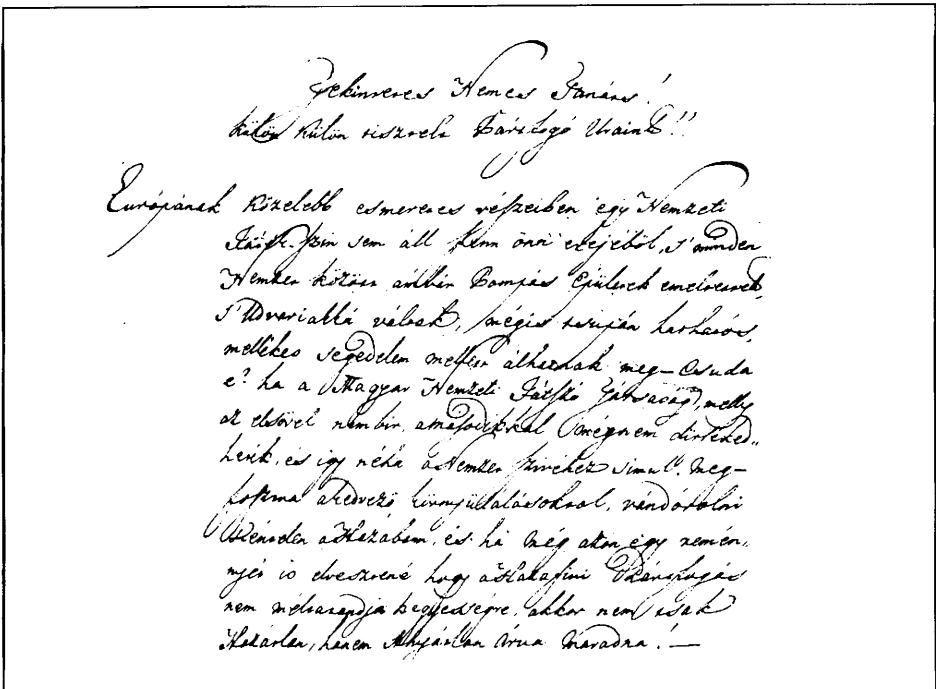 Tekintetes Nemes Tanács!
külön külön tisztelt Pártfogó Uraink!!
Európának közelebb esmeretes részeiben egy Nemzeti
Játék-szin sem áll fenn önn erejéből, s' minden
Nemzet között Pompás Épületek emeltetnek,
s' Udvariakká váltak, mégis tsupán hathatós,
mellékes segedelem mellett álhatnak meg – Csuda
e? ha a Magyar Nemzeti Játszó Társaság, melly
az elsővel nem bir, a másodikkal még nem
és igy néha a Nemzet szivéhez simul. meg-
fosztva a kedvező környülállásoktól, vándorolni
a Hazában, és ha még azon egy
is elvesztené hogy a Hazafiui Pártfogás
nem méltatandja kegyességre, akkor nem tsak
Hazátlan, hanem Árva maradna! —